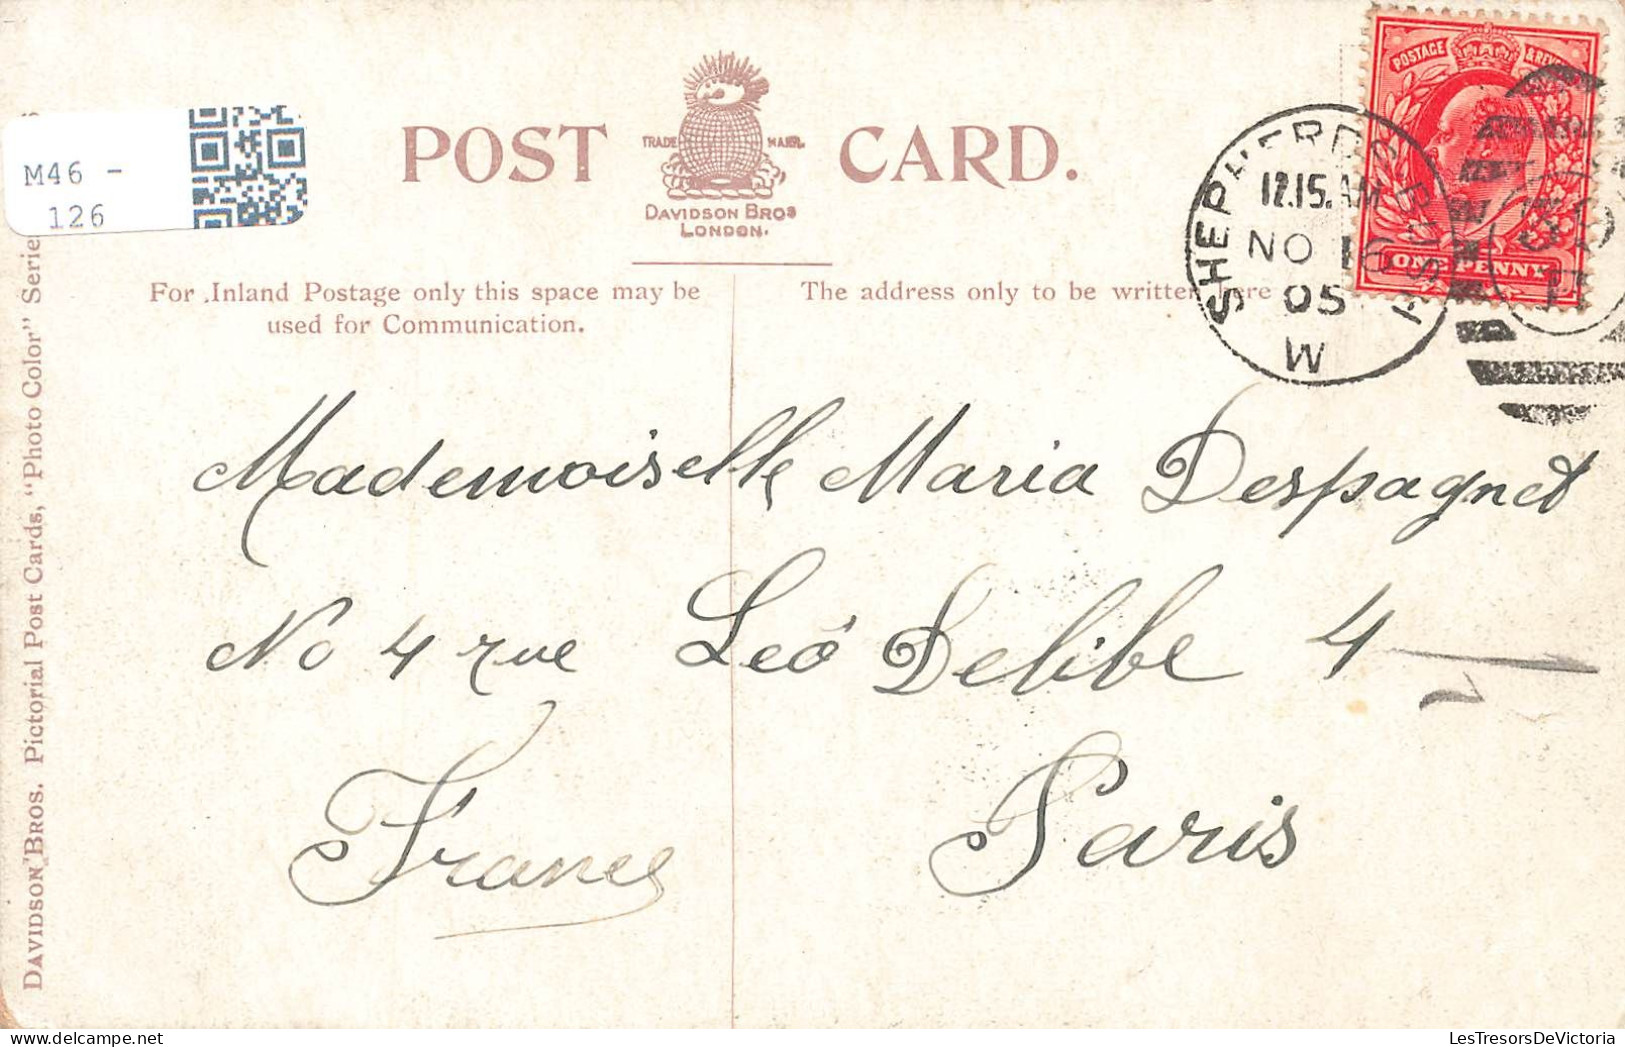 M46 -
126
POST CARD.
TRADE MARK.
DAVIDSON BROS
LONDON.
For Inland Postage only this space may be
used for Communication.
The address only to be written here
POSTAGE & REV
ONE PENNY
SHEPHERDS BUSH
12.15.AM
NO 16
05
W
Mademoiselle Maria Despagnet
No 4 rue Leó Delibe 4
Paris
France
DAVIDSON BROS. Pictorial Post Cards, "Photo Color" Series
LesTresorsDeVictoria